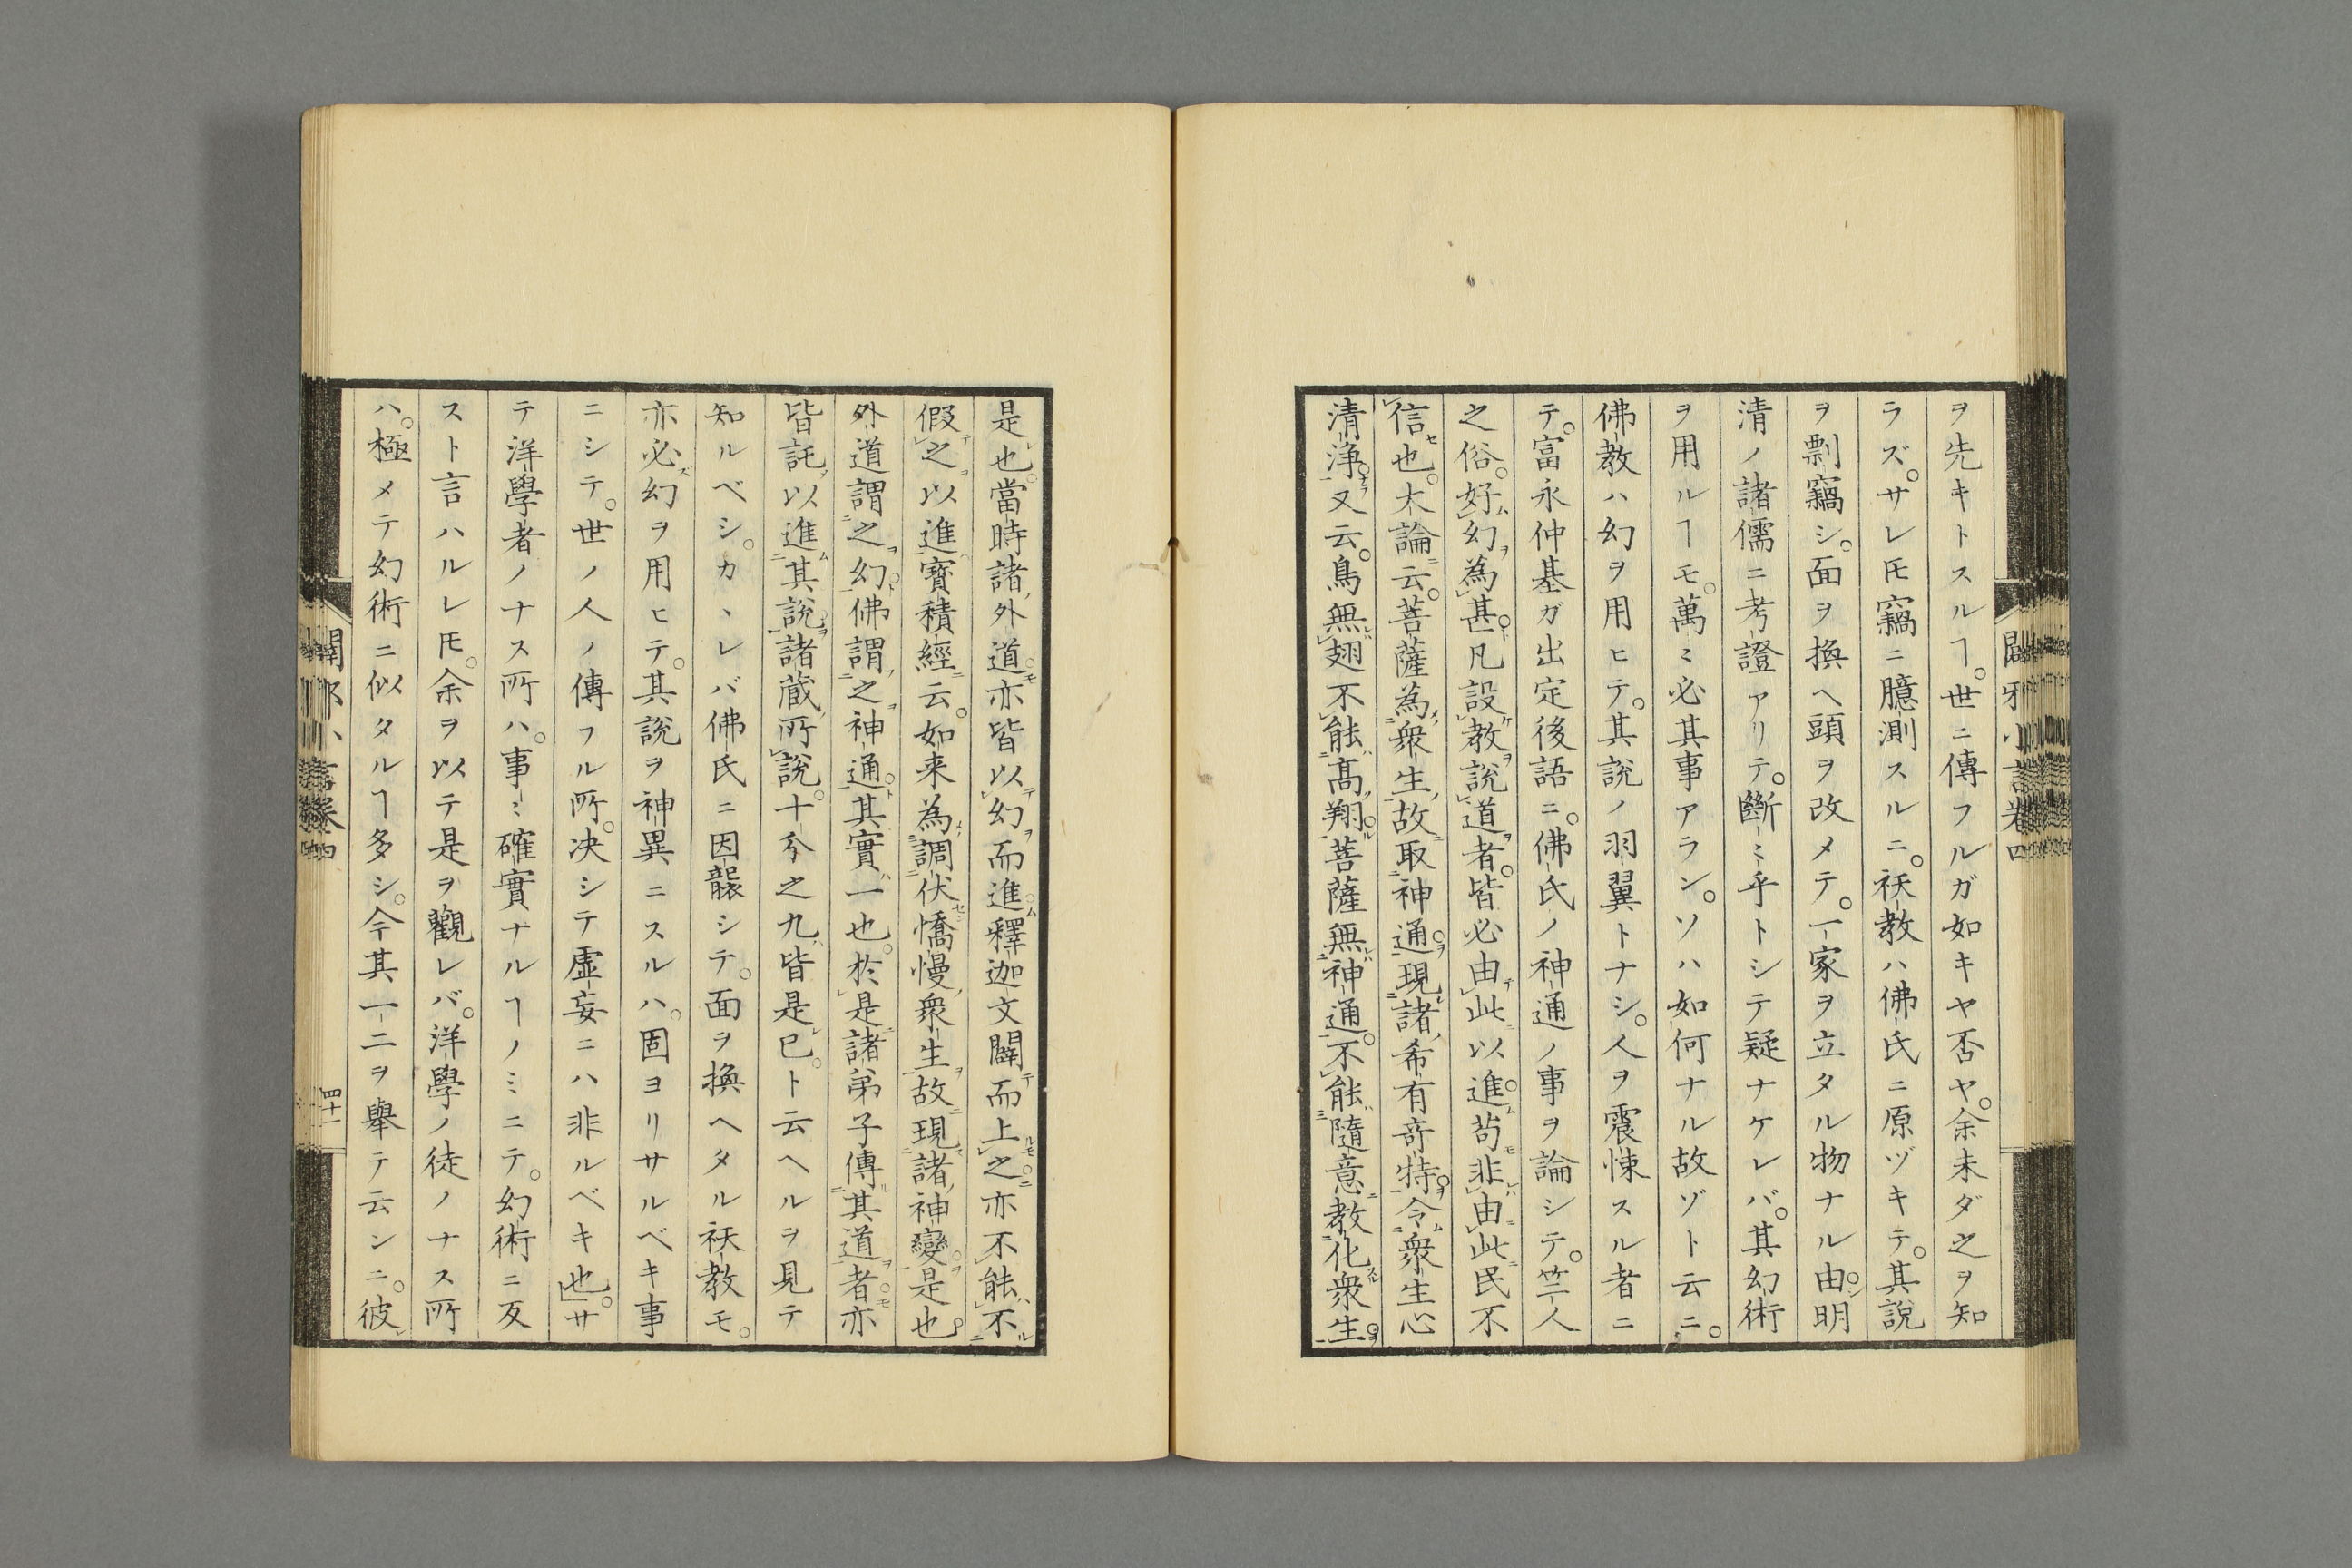 ヲ先キトスルヿ。世ニ傳フルガ如キヤ否ヤ。余未ダ之ヲ知
ラズ。サレ𪜈竊ニ臆測スルニ。祅教ハ佛氏ニ原ヅキテ。其說
ヲ剽竊シ。面ヲ換ヘ頭ヲ改メテ。一家ヲ立タル物ナル由。明
清ノ諸儒ニ考證アリテ。斷〻乎トシテ疑ナケレバ。其幻術
ヲ用ルヿモ。萬〻必其事アラン。ソハ如何ナル故ゾト云ニ。
佛教ハ幻ヲ用ヒテ。其說ノ羽翼トナシ。人ヲ震悚スル者ニ
テ。富永仲基ガ出定後語ニ。佛氏ノ神通ノ事ヲ論シテ。竺人
之俗。好幻為甚。凡設教說道者。皆必由此以進。苟非由此民不
信也。大論云。菩薩為衆生故取神通。現諸希有奇特。令衆生心
清浄。又云。鳥無翅不能高翔。菩薩無神通。不能隨意教化衆生。
是也。當時諸外道亦皆以幻而進。釋迦文闢而上之。亦不能不
假之以進。寳積經云。如来為調伏憍慢衆生故現諸神變。是也。
外道謂之幻。佛謂之神通。其實一也。於是諸弟子傳其道者。亦
皆託以進其說。諸蔵所說。十分之九皆是已。ト云ヘルヲ見テ
知ルベシ。カヽレバ佛氏ニ因襲シテ。面ヲ換ヘタル祅教モ。
亦必幻ヲ用ヒテ。其說ヲ神異ニスルハ。固ヨリサルベキ事
ニシテ。世ノ人ノ傳フル所。決シテ虚妄ニハ非ルベキ也。」サ
テ洋學者ノナス所ハ。事〻確實ナルヿノミニテ。幻術ニ反
スト言ハルレ𪜈。余ヲ以テ是ヲ觀レバ。洋學ノ徒ノナス所
ハ。極メテ幻術ニ似タルヿ多シ。今其一二ヲ舉テ云ンニ。彼
闢邪小言卷四
四十一